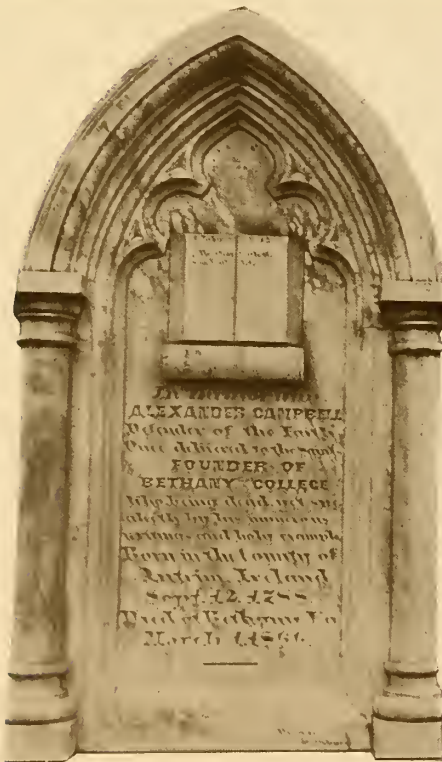 In Memoriam
ALEXANDER CAMPBELL
Defender of the Faith
Once delivered to the Saints
FOUNDER OF
BETHANY COLLEGE
Who being dead yet
by his
writings and holy example
Born in the County of
Antrim, Ireland
Sept. 12, 1788
Died at Bethany Va
March 4 1866